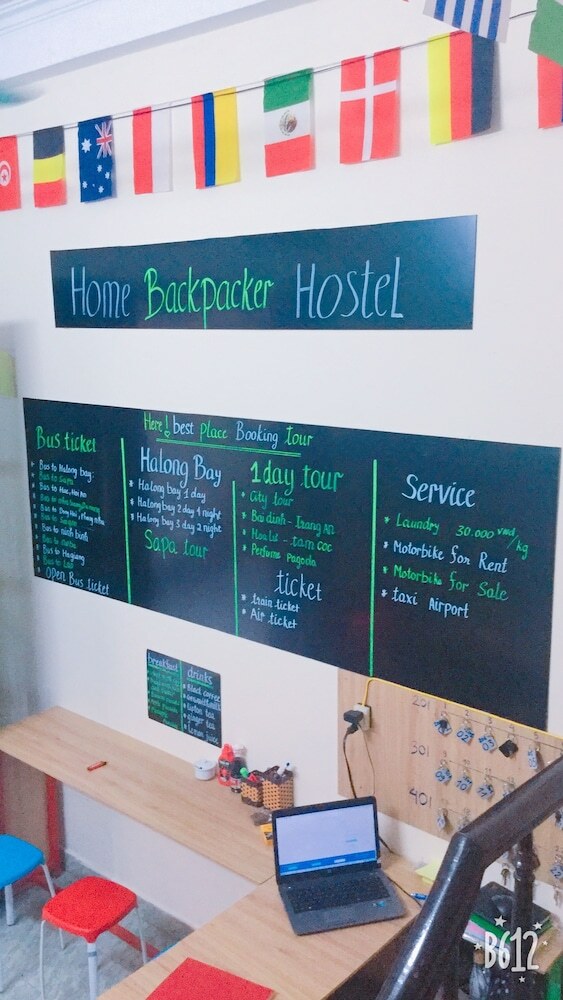 Home Backpacker Hostel
Here! best place Booking tour
Bus ticket
* Bus to Halong bay:
* Bus to Sapa
* Bus to Hue, Hoi An
* Bus to ninh binh
* Bus to Hagiang
* Bus to Lao
* OPen Bus ticket
Halong Bay
* Halong bay 1 day
* Halong bay 2 day 1 night
* Halong bay 3 day 2 night
Sapa tour
1 day tour
* City tour
* Bai dinh - Trang An
* Hoa lu - tam coc
* Perfume Pagoda
ticket
* train ticket
* Air ticket
Service
* Laundry 30.000 vnd/kg
* Motorbike for Rent
* Motorbike for Sale
* taxi Airport
breakfast
drinks
* Black coffee
* Lipton tea
* ginger tea
* Lemon juice
201
301
401
B612